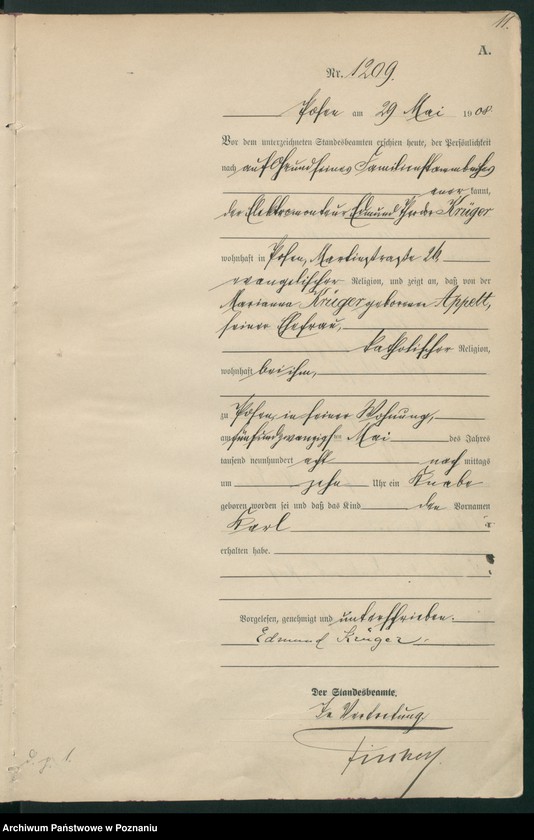 11.
A.
Nr. 1209.
Posen am 29 Mai 1908
Vor dem unterzeichneten Standesbeamten erschien heute, der Persönlichkeit
nach auf Grund seines Familienstammbuches
aner kannt,
der Elektromonteur Edmund Krüger
wohnhaft in Posen, Martinstraße 26
evangelischer Religion, und zeigt an, daß von der
Marianna Krüger geborenen Appelt,
seiner Ehefrau,
katholischer Religion,
wohnhaft bei ihm,
zu Posen, in seiner Wohnung,
am fünfundzwanzigsten Mai des Jahres
tausend neunhundert acht nach mittags
um zehn Uhr ein Knabe
geboren worden sei und daß das Kind den Vornamen
Karl
erhalten habe.
Vorgelesen, genehmigt und unterschrieben.
Edmund Krüger.
Der Standesbeamte.
In Vertretung
Archiwum Państwowe w Poznaniu